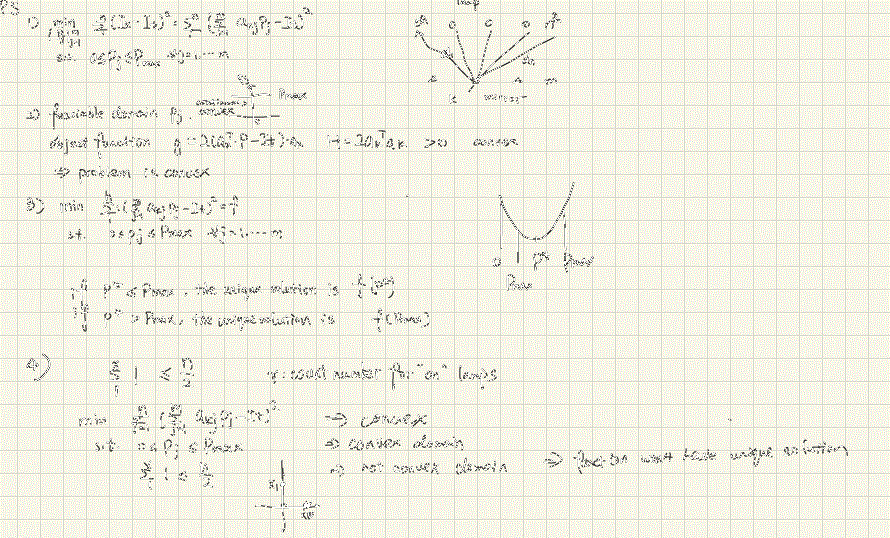 P3
lamp
1) min Σ (Ik - It)² = Σ (Σ akj Pj - It)²
s.t. 0 ≤ Pj ≤ Pmax ∀j=1,...m
Pmax
2) feasible domain Pj, convex
object function g = 2(akᵀ·P - It)·ak H = 2akᵀak >0 convex
⇒ problem is convex
3) min Σ (Σ akj Pj - It)² = f
s.t. 0 ≤ Pj ≤ Pmax ∀j=1,...m
0 P* Pmax
Pmax
if P* ≤ Pmax, the unique solution is f(P*)
if P* > Pmax, the unique solution is f(Pmax)
4) Σ 1 ≤ n/2 r: count number for "on" lamps
min Σ (Σ akj Pj - It)² → convex
s.t. 0 ≤ Pj ≤ Pmax ⇒ convex domain
Σ 1 ≤ ⇒ not convex domain ⇒ won't have unique solution